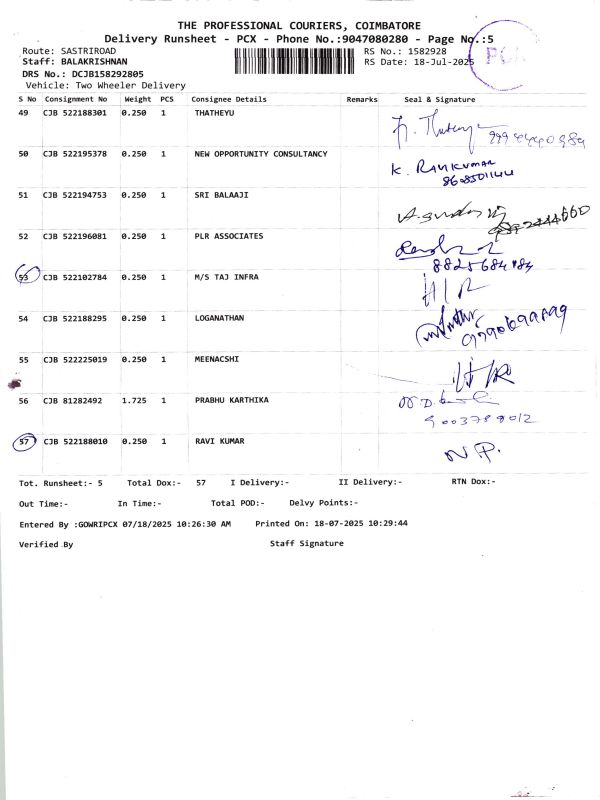 THE PROFESSIONAL COURIERS, COIMBATORE
Delivery Runsheet - PCX - Phone No.:9047080280 - Page No.:5
Route: SASTRIROAD RS No.: 1582928
Staff: BALAKRISHNAN RS Date: 18-Jul-2025
DRS No.: DCJB158292805
Vehicle: Two Wheeler Delivery
PCX
S No Consignment No Weight PCS Consignee Details Remarks Seal & Signature
49 CJB 522188301 0.250 1 THATHEYU
50 CJB 522195378 0.250 1 NEW OPPORTUNITY CONSULTANCY K. RAVIKUMAR
8608501144
51 CJB 522194753 0.250 1 SRI BALAAJI
52 CJB 522196081 0.250 1 PLR ASSOCIATES
53 CJB 522102784 0.250 1 M/S TAJ INFRA
54 CJB 522188295 0.250 1 LOGANATHAN
55 CJB 522225019 0.250 1 MEENACSHI
56 CJB 81282492 1.725 1 PRABHU KARTHIKA
9003788012
57 CJB 522188010 0.250 1 RAVI KUMAR N.P.
Tot. Runsheet:- 5 Total Dox:- 57 I Delivery:- II Delivery:- RTN Dox:-
Out Time:- In Time:- Total POD:- Delvy Points:-
Entered By :GOWRIPCX 07/18/2025 10:26:30 AM Printed On: 18-07-2025 10:29:44
Verified By Staff Signature